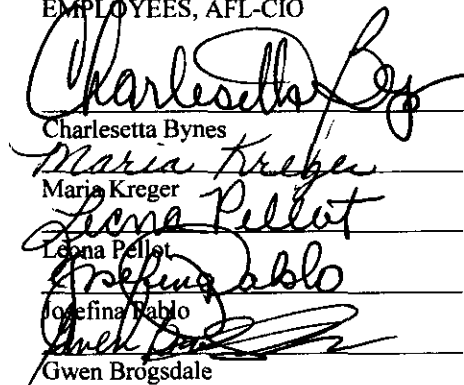 EMPLOYEES, AFL-CIO
Charlesetta By
Charlesetta Bynes
Maria Kreger
Maria Kreger
Leona Pellot
Leona Pellot
Josefina Pablo
Josefina Pablo
Gwen
Gwen Brogsdale